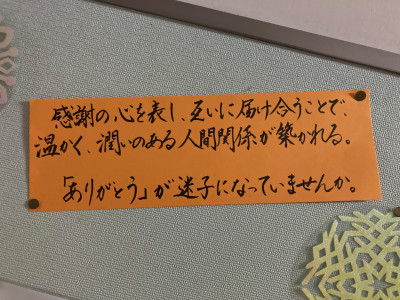 感謝の心を表し、互いに届け合うことで、
温かく、潤いのある人間関係が築かれる。
「ありがとう」が迷子になっていませんか。